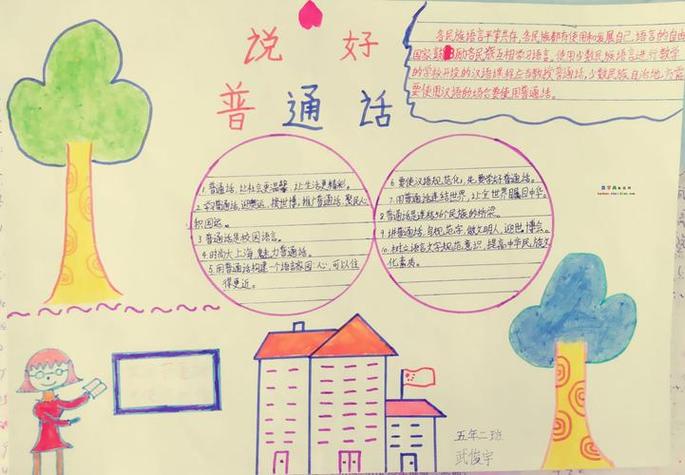 说 好
普 通 话
各民族语言平等共存,各民族都有使用和发展自己语言的自由
国家鼓励各民族互相学习语言,使用少数民族语言进行教学
的学校开设的汉语课程应当教授普通话,少数民族自治地方
要使用汉语的场合要使用普通话。
1.普通话,让社会更温馨,让生活更精彩。
2.学习普通话,迎奥运,接世博,推广普通话,聚民心
积国运。
3.普通话是校园语言。
4.时尚大上海,魅力普通话。
5.用普通话构建一个语言家园,心,可以住
得更近。
6.要使汉语规范化,先要学好普通话。
7.用普通话连结世界,让全世界瞩目中华。
8.普通话是连结56个民族的桥梁。
9.讲普通话,写规范字,做文明人,迎世博会。
10.树立语言文字规范意识,提高中华民族文
化素质。
五年二班
武俊宇